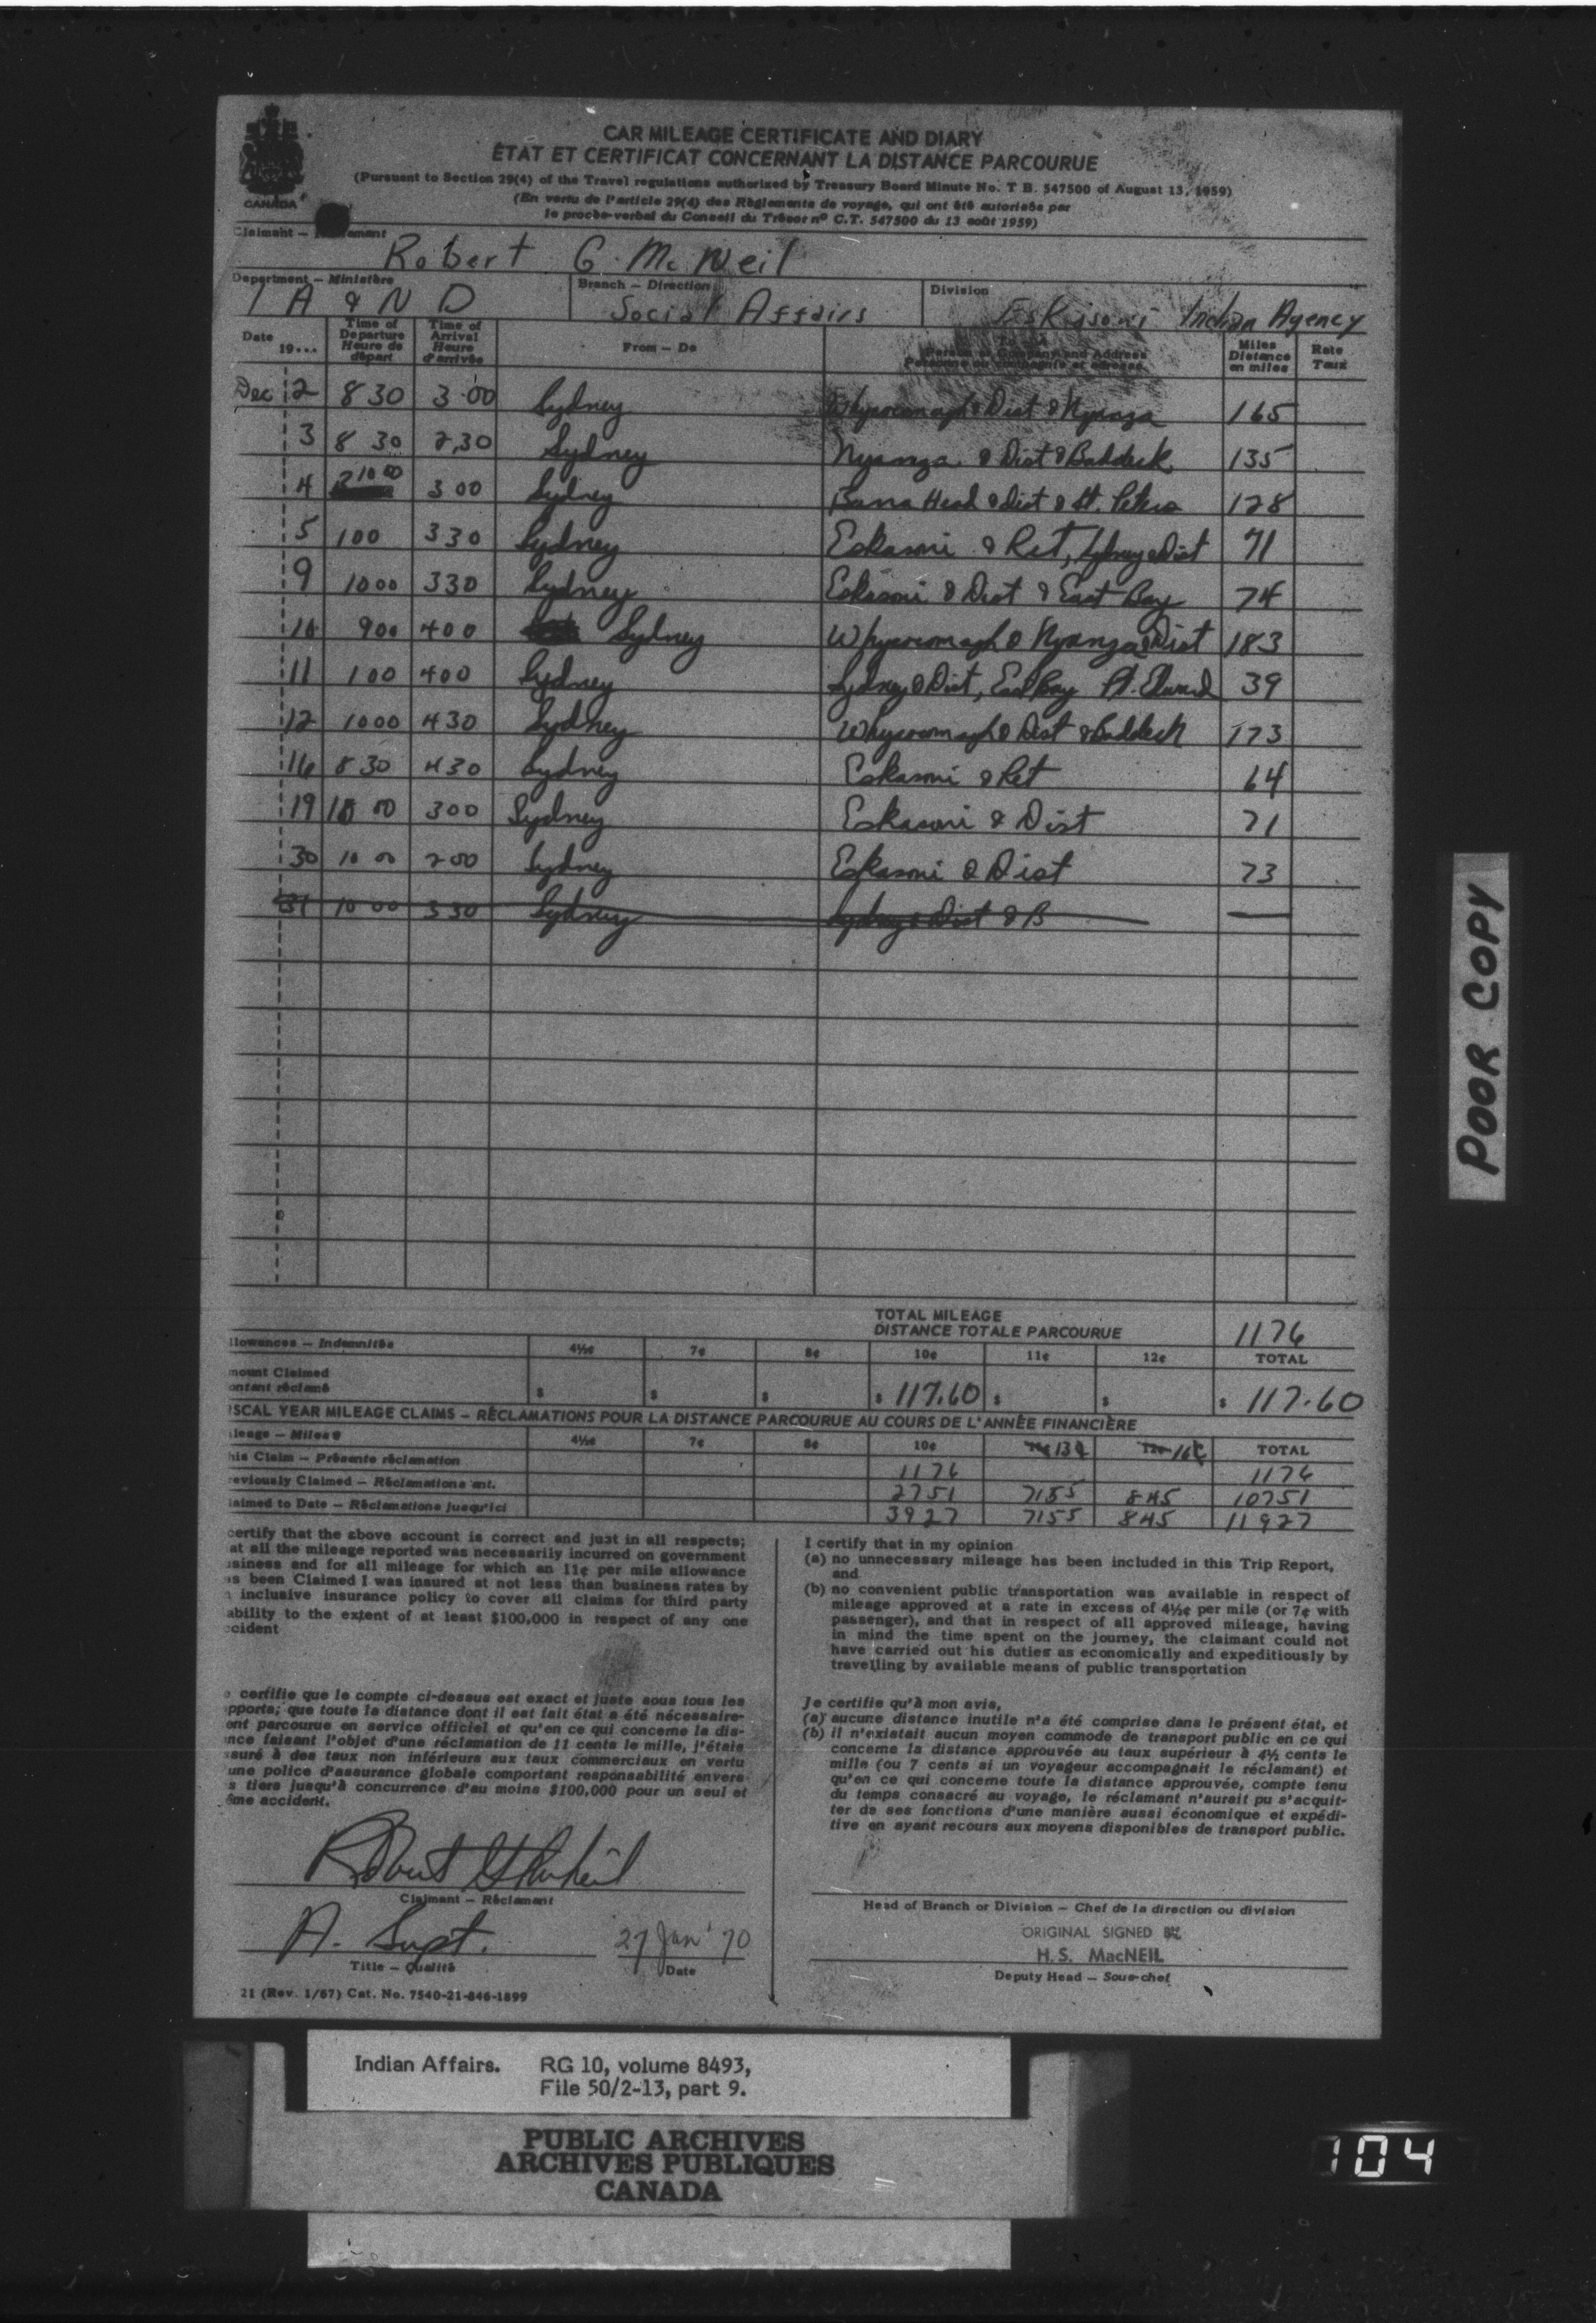 CAR MILEAGE CERTIFICATE AND DIARY
ÉTAT ET CERTIFICAT CONCERNANT LA DISTANCE PARCOURUE
(Pursuant to Section 29(4) of the Travel regulations authorized by Treasury Board Minute No. T B. 547500 of August 13, 1959)
(En vertu de l'article 29(4) des Règlements de voyage, qui ont été autorisés par
le procès-verbal du Conseil du Trésor nº C.T. 547500 du 13 août 1959)
CANADA
Claimant –
Robert G. McNeil
Department – Ministère Branch – Direction Division
I A & N D Social Affairs Eskasoni Indian Agency
Date 19... Time of Departure Heure de départ Time of Arrival Heure d'arrivée From – De Person or Company and Address Miles Distance en milles Rate Taux
Dec 2 8 30 3 00 Sydney Whycocomagh & Dist & Nyanza 165
3 8 30 2,30 Sydney Nyanza & Dist & Baddeck 135
4 10 00 3 00 Sydney Barra Head & Dist & St. Peters 128
5 100 330 Sydney Eskasoni & Ret, Sydney & Dist 71
9 1000 330 Sydney Eskasoni & Dist & East Bay 74
10 900 400 Sydney Whycocomagh & Nyanza & Dist 183
11 100 400 Sydney Sydney & Dist, East Bay Pt. Edward 39
12 1000 430 Sydney Whycocomagh & Dist & Baddeck 173
16 8 30 430 Sydney Eskasoni & Ret 64
19 10 00 300 Sydney Eskasoni & Dist 71
30 10 00 200 Sydney Eskasoni & Dist 73
31 10 00 330 Sydney Sydney & Dist & B —
TOTAL MILEAGE
DISTANCE TOTALE PARCOURUE 1176
llowances – Indemnités 4½¢ 7¢ 8¢ 10¢ 11¢ 12¢ TOTAL
mount Claimed
ontant réclamé $ $ $ $ 117.60 $ $ $ 117.60
ISCAL YEAR MILEAGE CLAIMS – RÉCLAMATIONS POUR LA DISTANCE PARCOURUE AU COURS DE L'ANNÉE FINANCIÈRE
ileage – Milles 4½¢ 7¢ 8¢ 10¢ 13¢ 16¢ TOTAL
his Claim – Présente réclamation 1176 1176
reviously Claimed – Réclamations ant. 2751 7155 845 10751
laimed to Date – Réclamations jusqu'ici 3927 7155 845 11927
certify that the above account is correct and just in all respects;
at all the mileage reported was necessarily incurred on government
usiness and for all mileage for which an 11¢ per mile allowance
as been Claimed I was insured at not less than business rates by
n inclusive insurance policy to cover all claims for third party
ability to the extent of at least $100,000 in respect of any one
ccident
e certifie que le compte ci-dessus est exact et juste sous tous les
pports; que toute la distance dont il est fait état a été nécessaire-
ent parcourue en service officiel et qu'en ce qui concerne la dis-
nce faisant l'objet d'une réclamation de 11 cents le mille, j'étais
ssuré à des taux non inférieurs aux taux commerciaux en vertu
une police d'assurance globale comportant responsabilité envers
s tiers jusqu'à concurrence d'au moins $100,000 pour un seul et
ême accident.
Robert G McNeil
Claimant – Réclamant
A. Supt. 27 Jan '70
Title – Qualité Date
21 (Rev. 1/67) Cat. No. 7540-21-846-1899
I certify that in my opinion
(a) no unnecessary mileage has been included in this Trip Report,
and
(b) no convenient public transportation was available in respect of
mileage approved at a rate in excess of 4½¢ per mile (or 7¢ with
passenger), and that in respect of all approved mileage, having
in mind the time spent on the journey, the claimant could not
have carried out his duties as economically and expeditiously by
travelling by available means of public transportation
Je certifie qu'à mon avis,
(a) aucune distance inutile n'a été comprise dans le présent état, et
(b) il n'existait aucun moyen commode de transport public en ce qui
concerne la distance approuvée au taux supérieur à 4½ cents le
mille (ou 7 cents si un voyageur accompagnait le réclamant) et
qu'en ce qui concerne toute la distance approuvée, compte tenu
du temps consacré au voyage, le réclamant n'aurait pu s'acquit-
ter de ses fonctions d'une manière aussi économique et expédi-
tive en ayant recours aux moyens disponibles de transport public.
Head of Branch or Division – Chef de la direction ou division
ORIGINAL SIGNED BY
H.S. MacNEIL
Deputy Head – Sous-chef
POOR COPY
Indian Affairs. RG 10, volume 8493,
File 50/2-13, part 9.
PUBLIC ARCHIVES
ARCHIVES PUBLIQUES
CANADA
104